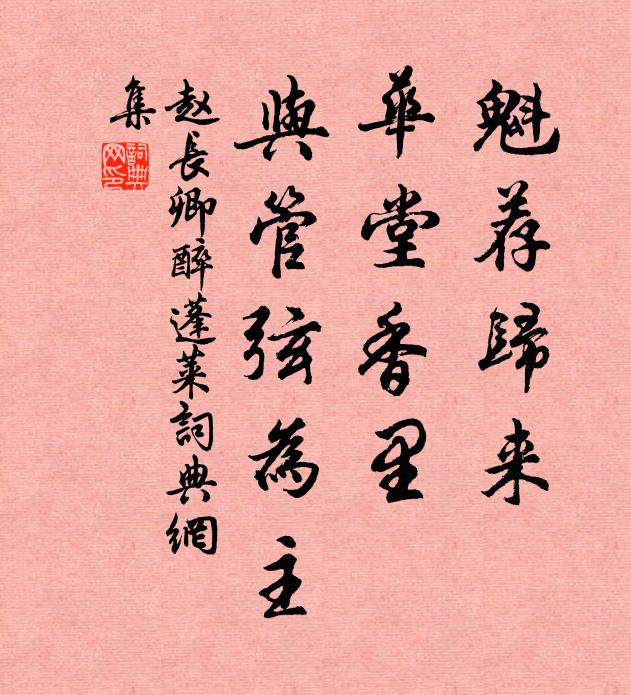 魁荐歸来
華堂香里
與管弦為主
赵長卿醉蓬莱詞典網
集
詞典网印